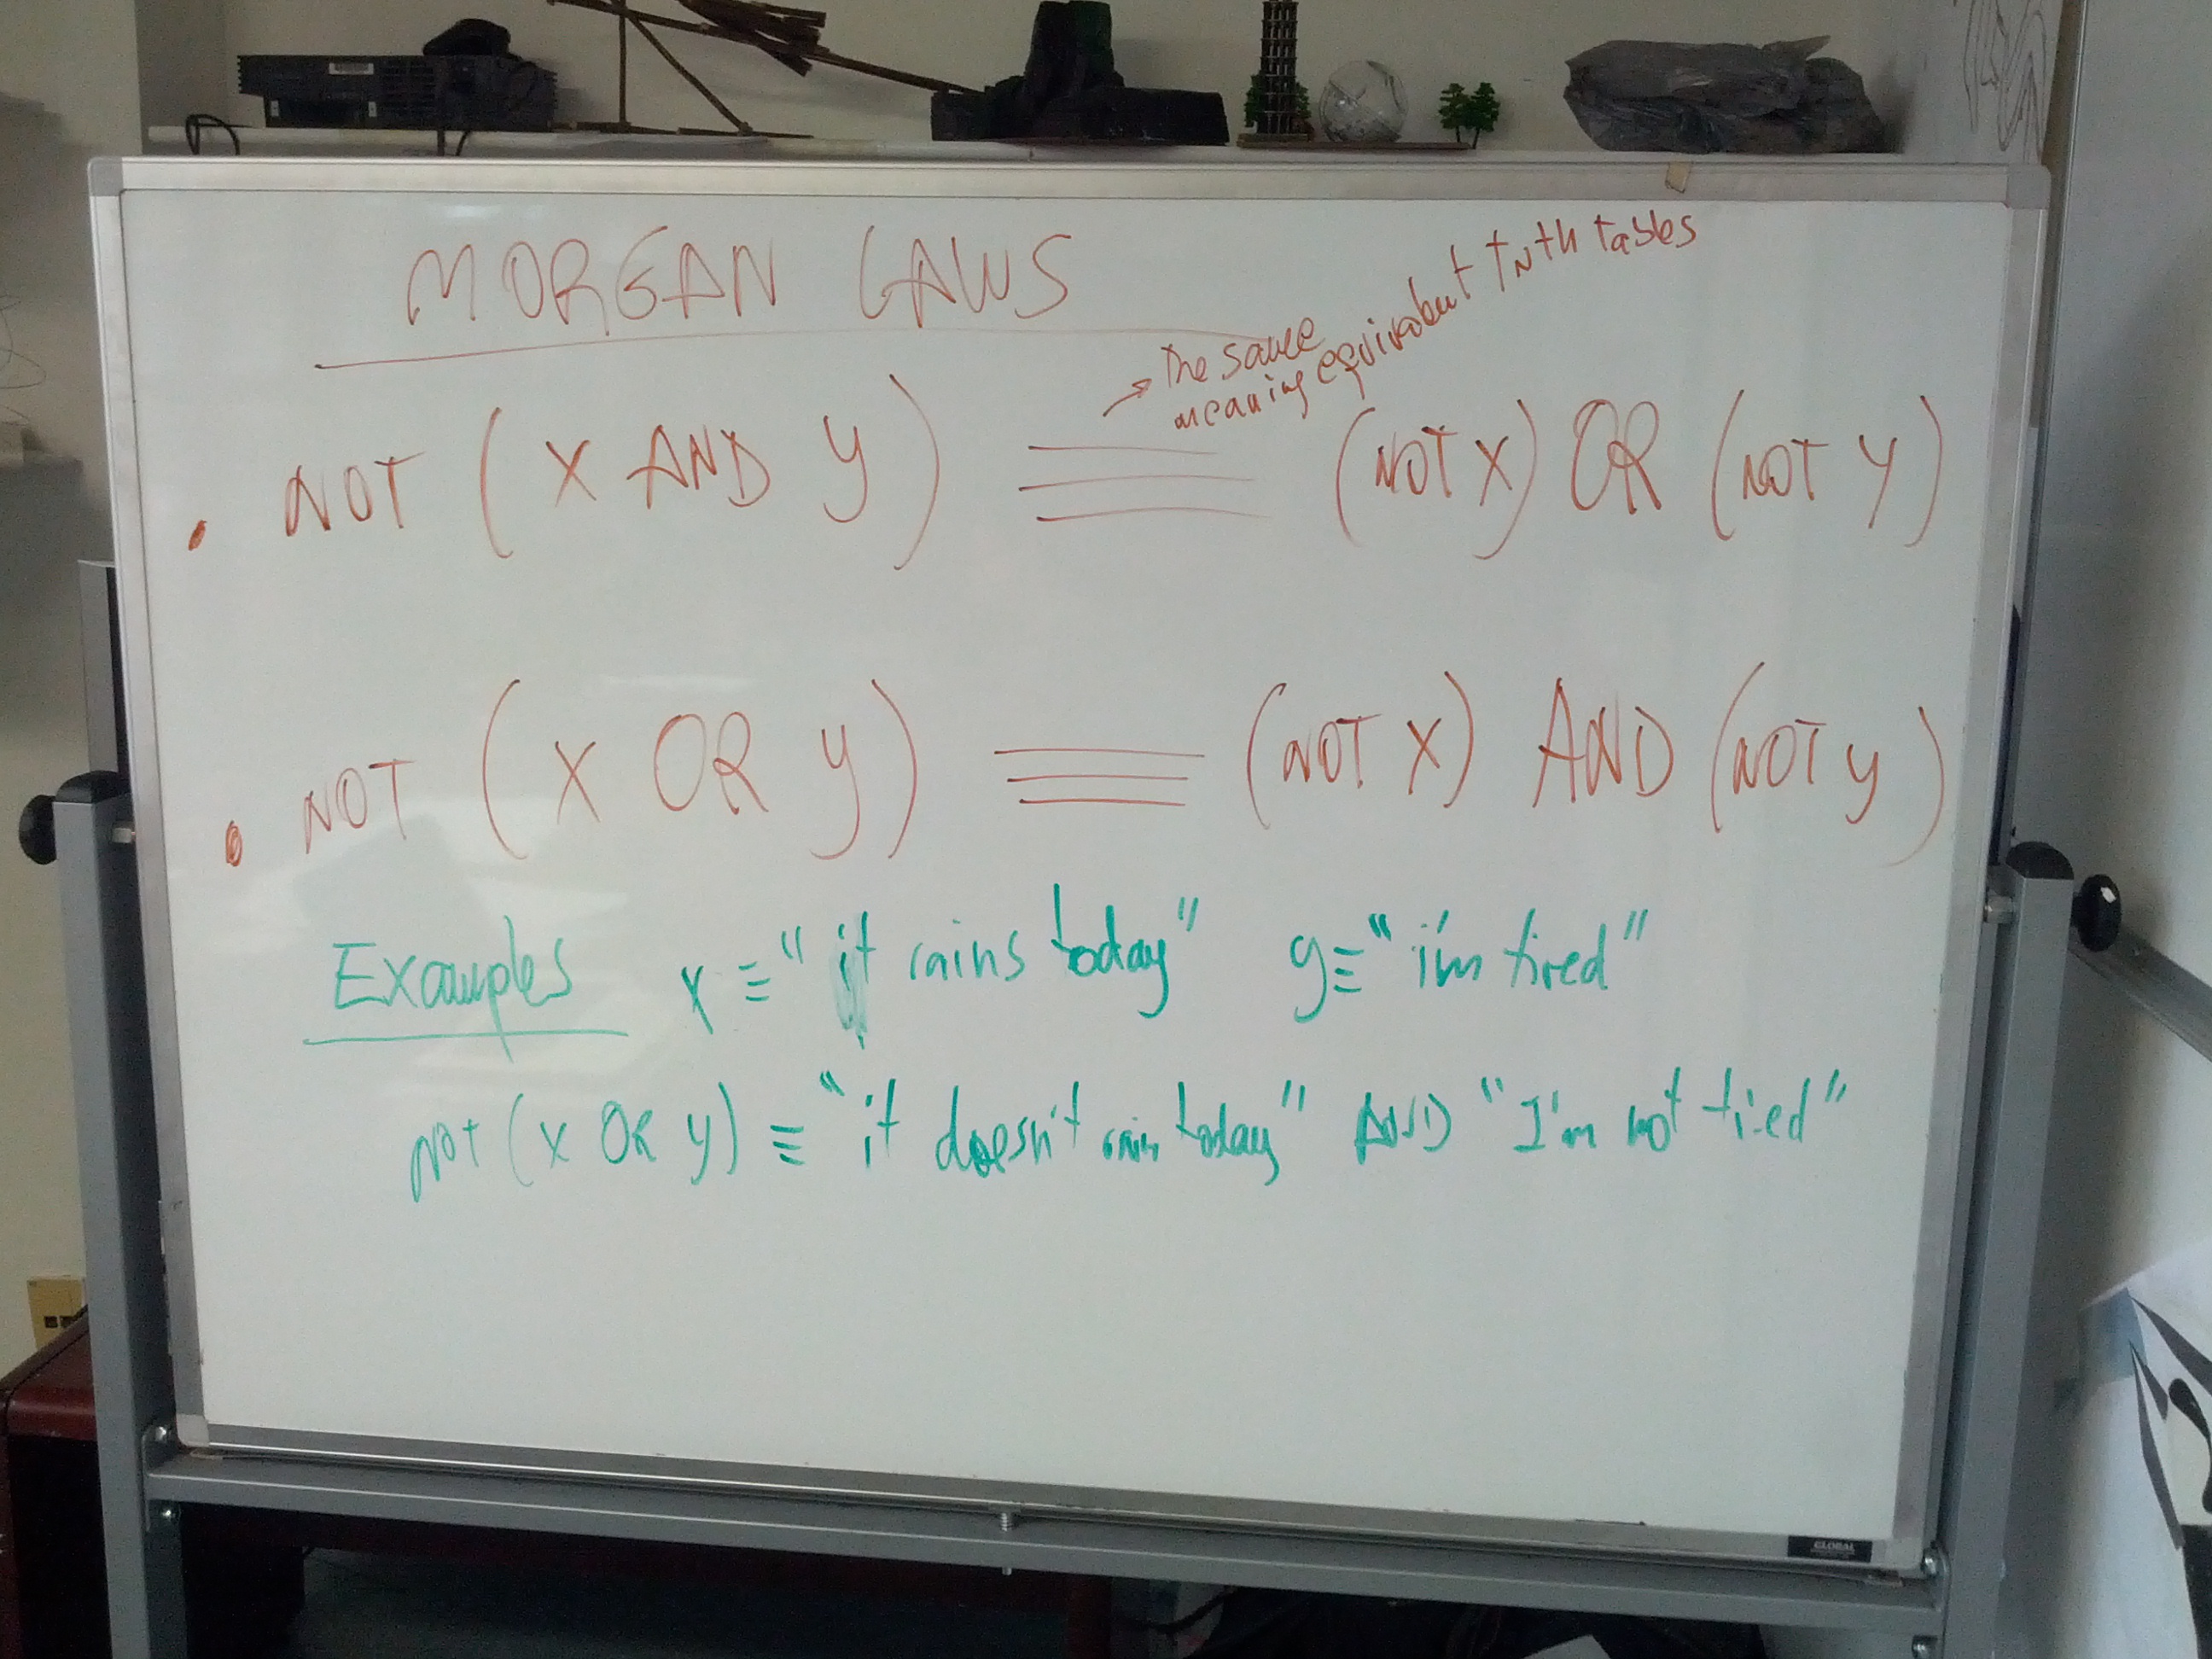 MORGAN LAWS
→ The same meaning equivalent truth tables
• NOT (X AND Y) ≡ (NOT X) OR (NOT Y)
• NOT (X OR Y) ≡ (NOT X) AND (NOT y)
Examples x ≡ "it rains today" y ≡ "i'm tired"
not (x OR y) ≡ "it doesn't rain today" AND "I'm not tired"
GLOBAL